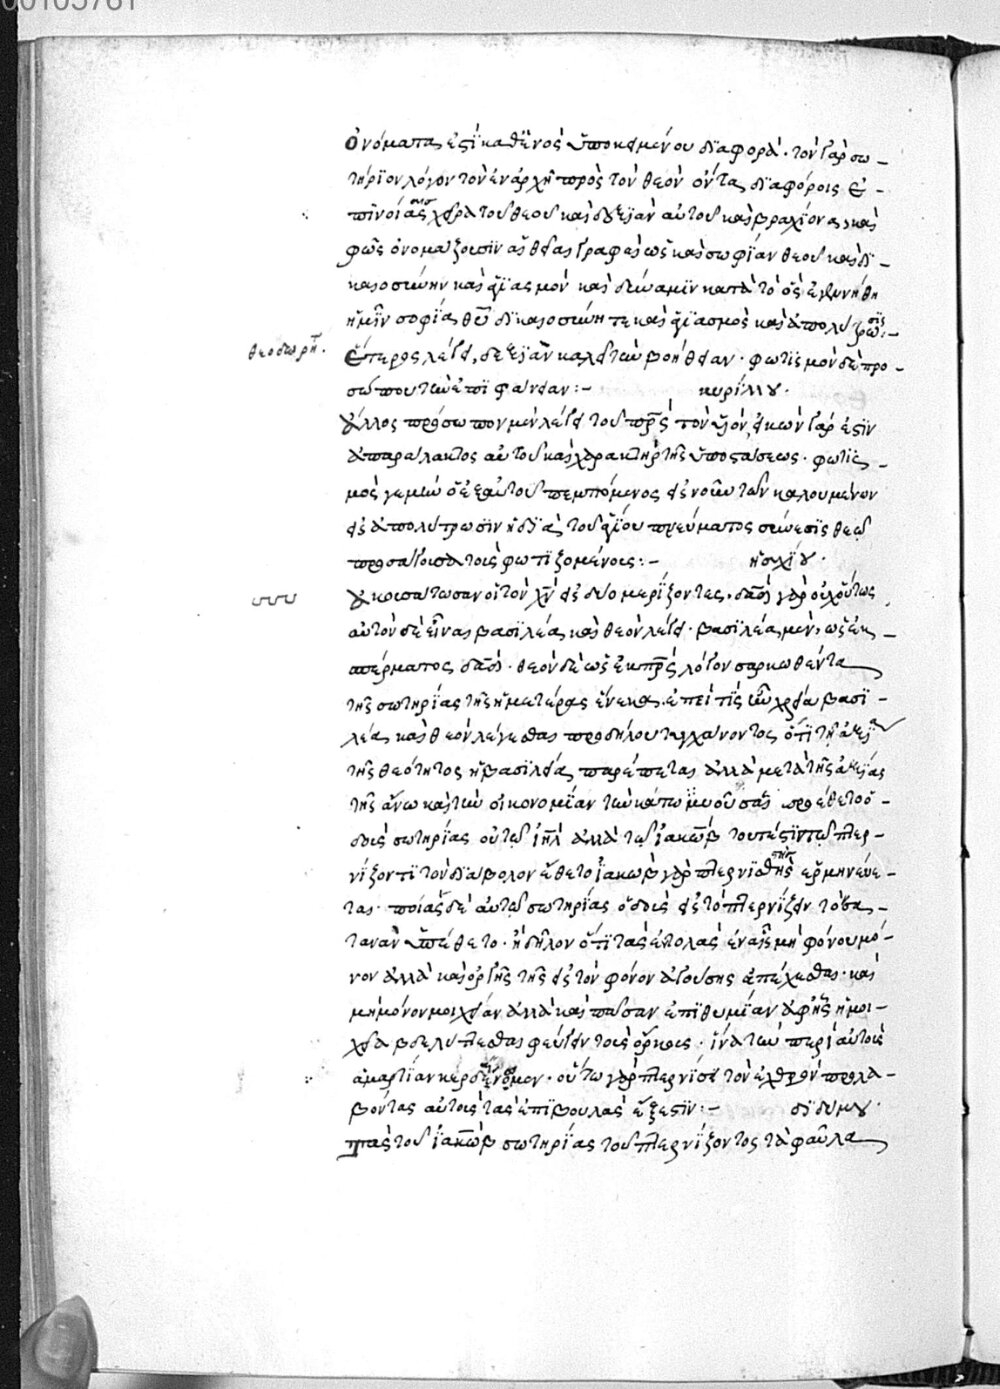 00105761
ὀνόματα ἐστὶ καθ' ἑνὸς ὑποκειμένου διάφορα. τὸν γὰρ σω-
τήριον λόγον τὸν ἐν ἀρχῇ πρὸς τὸν θεὸν ὄντα διαφόροις ἐ-
πινοίαις χεῖρα τοῦ θεοῦ καὶ δεξιὰν αὐτοῦ καὶ βραχίονα, καὶ
φῶς ὀνομάζουσιν αἱ θεῖαι γραφαὶ ὡς καὶ σοφίαν θεοῦ καὶ δι-
καιοσύνην καὶ ἁγιασμὸν καὶ δύναμιν κατὰ τὸ ὃς ἐγενήθη
ἡμῖν σοφία θεοῦ δικαιοσύνη τε καὶ ἁγιασμὸς καὶ ἀπολύτρωσις:-
θεοδωρήτ.
ἕτερος λέγει, δεξιὰν καλεῖ τὴν βοήθειαν. φωτισμὸν δὲ προ-
σώπου τὴν ἐπιφάνειαν:- κυρίλλου.
ἄλλος πρόσωπον μὲν λέγει τοῦ πρς τὸν υἱόν, εἰκὼν γάρ ἐστιν
ἀπαράλακτος αὐτοῦ καὶ χαρακτὴρ τῆς ὑποστάσεως. φωτισ-
μὸς γεμὴν ὁ ἐξ αὐτοῦ πεμπόμενος εἰς νοῦν τῶν καλουμένων
εἰς ἀπολύτρωσιν ἡ διὰ τοῦ ἁγίου πνεύματος σύνεσις θεῷ
προσάγουσα τοῖς φωτιζομένοις:- ἡσυχίου.
ἀκουσάτωσαν οἱ τὸν χν εἰς δύο μερίζοντες. δαδ γὰρ οὐχ οὕτως
αὐτὸν δὲ εἶναι βασιλέα καὶ θεὸν λέγει. βασιλέα μὲν, ὡς ἐκ
σπέρματος δαδ. θεὸν δὲ ὡς ἐκ πρς λόγον σαρκωθέντα
τῆς σωτηρίας τῆς ἡμετέρας ἕνεκα. ἐπεὶ τίς ἦν χρεία βασι-
λέα καὶ θεὸν λέγεσθαι προδήλου τυγχάνοντος ὅτι τῇ ἀξίᾳ
τῆς θεότητος ἡ βασιλεία παρέπεται ἀλλὰ μετὰ τῆς ἀξίας
τῆς ἄνω καὶ τὴν οἰκονομίαν τὴν κάτω
δοὺς σωτηρίας οὐ τῷ ιηλ ἀλλὰ τῷ ἰακὼβ τουτέστιν τῷ πτερ-
νίζοντι τὸν διάβολον ἔθετο ἰακὼβ γὰρ πτερνιστὴς ἑρμηνεύε-
ται. ποίας δὲ αὐτῷ σωτηρίας ὁδοὺς εἰς τὸ πτερνίζειν τὸν σα-
τανᾶν ὑπέθετο. ἢ δῆλον ὅτι τὰς ἐντολάς μὴ φόνου μό-
νον ἀλλὰ καὶ ὀργῆς τῆς εἰς τὸν φόνον ἀγούσης ἀπέχεσθαι. καὶ
μὴ μόνον μοιχείαν ἀλλὰ καὶ πᾶσαν ἐπιθυμίαν ἀφ' ἧς ἡ μοι-
χεία βδελύττεσθαι φεύγειν τοὺς ὅρκους. ἵνα τὴν περὶ αὐτοὺς
ἁμαρτίαν κερδαίνωμεν. οὕτω γὰρ πτερνίσαι τὸν ἐχθρὸν προλα-
βόντας αὐτοῦ τὰς ἐπιβουλὰς ἔξεστιν:- διδύμου.
πᾶς τοῦ ἰακὼβ σωτηρίας τοῦ πτερνίζοντος τὰ φαῦλα